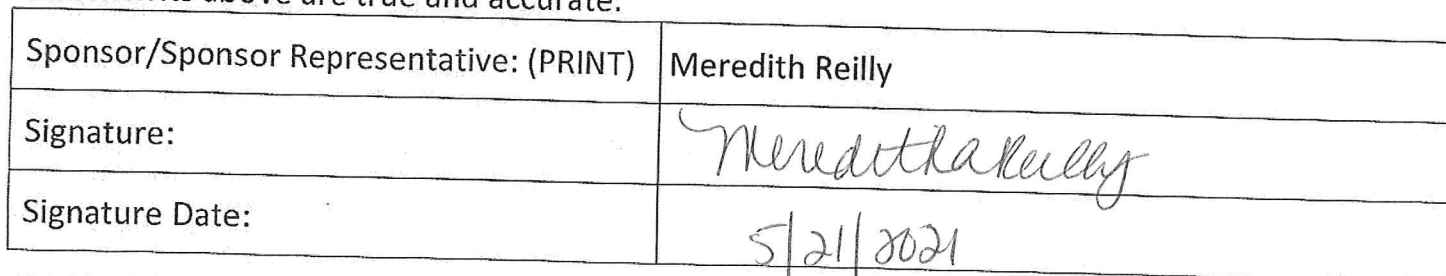 above are true and accurate.
Sponsor/Sponsor Representative: (PRINT) Meredith Reilly
Signature: Meredith A Reilly
Signature Date: 5/21/2021